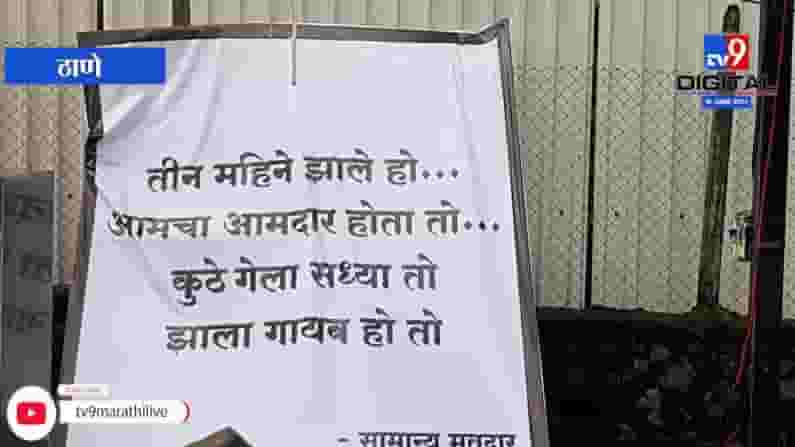 ठाणे
tv9
DIGITAL
तीन महिने झाले हो...
आमचा आमदार होता तो...
कुठे गेला सध्या तो
झाला गायब हो तो
- सामान्य मतदार
tv9marathilive